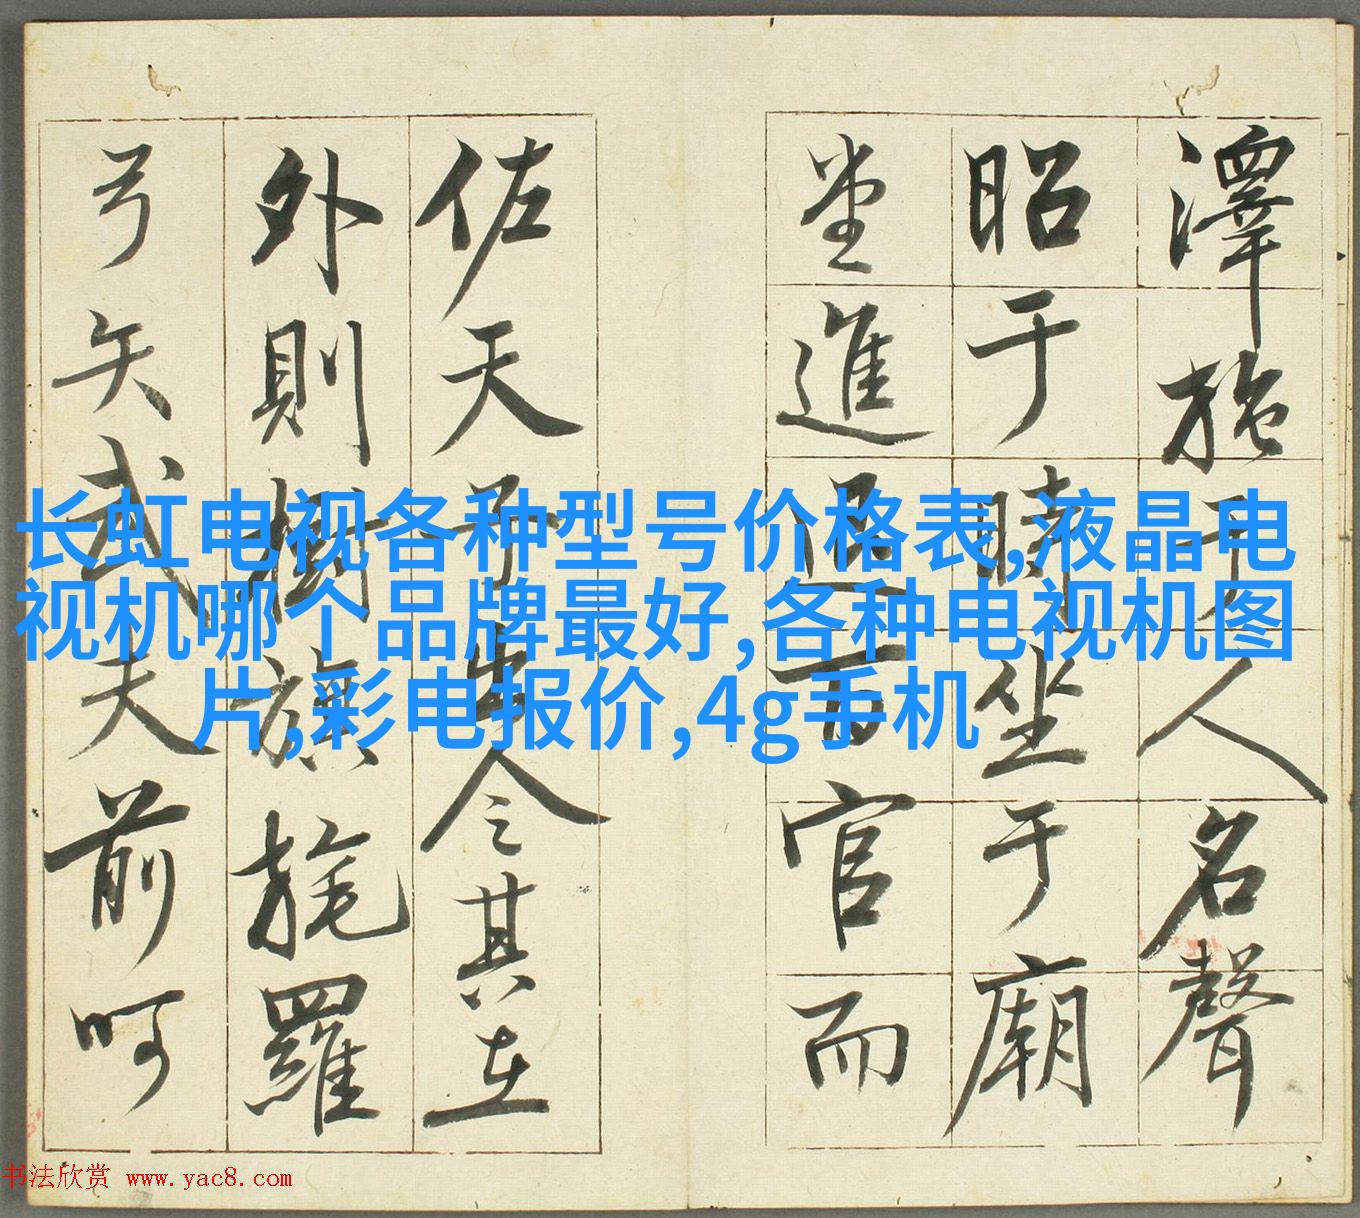 澤施于人名聲
昭于時坐于廟
堂進退百官而
佐天子出令其在
外則樹旗旄羅
弓矢武夫前呵
长虹电视各种型号价格表,液晶电
视机哪个品牌最好,各种电视机图
片,彩电报价,4g手机
书法欣赏 www.yac8.com